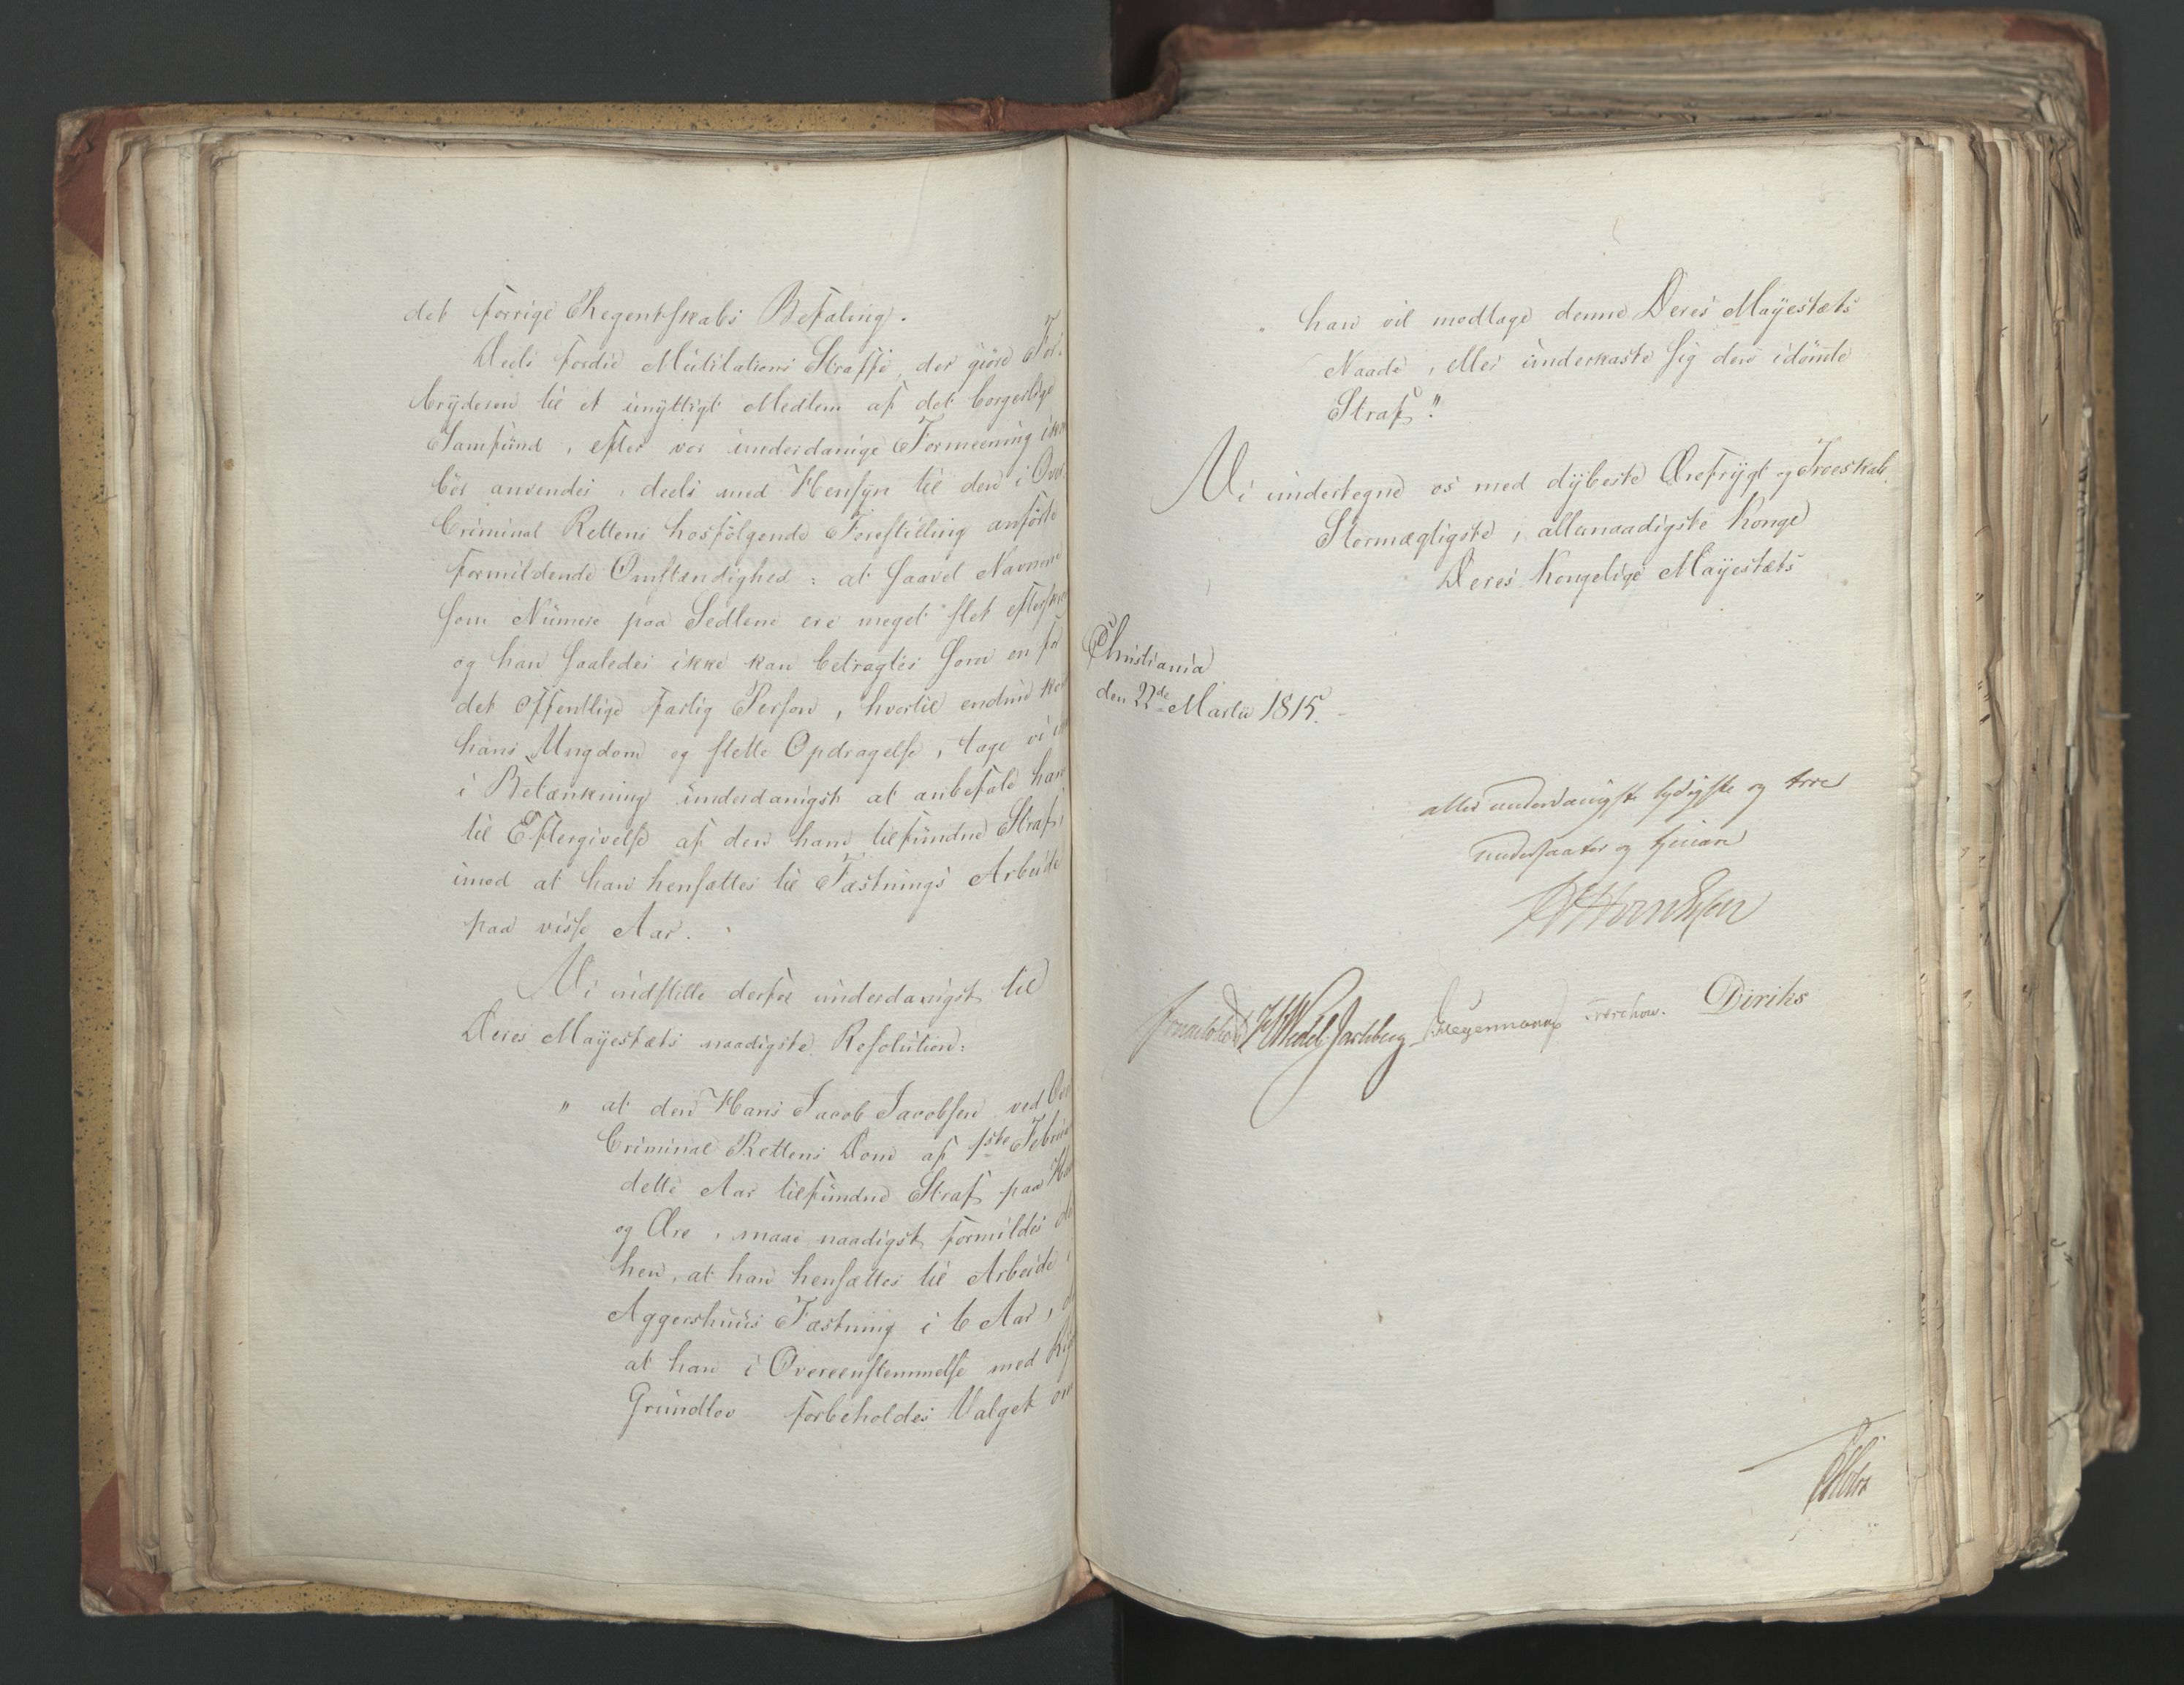 det forrige Regentskabs Befaling.
Deels fordie Mutilations Straffe, der giöre For-
bryderen til et unyttigt Medlem af det borgerlige
Samfund, efter vor underdanige Formeening ikke
bör anvendes, deels med Hensyn til den i Over-
Criminal Rettens hosfölgende Forestilling anförte
formildende Omstændighed: at saavel Navnene
som Numere paa Sedlene ere meget slet
og han saaledes ikke kan betragtes som en for
det offentlige farlig Person, hvortil endnu
hans Ungdom og slette Opdragelse, tage vi
i Betænkning underdanigst at anbefale ham
til Eftergivelse af den ham tilfundne Straf,
imod at han hensættes til Fæstnings Arbeide
paa visse Aar.
Vi indstille derfor underdanigst til
Deres Mayestæts naadigste Resolution:
" at den Hans Jacob Jacobsen ved
Criminal Rettens Dom af 1ste
dette Aar tilfundne Straf paa
og Ære, maae naadigst formildes
hen, at han hensættes til Arbeide i
Aggershuus Fæstning i 6 Aar,
at han i Overeenstemmelse med
Grundlov forbeholdes Valget om
" han vil modtage denne Deres Mayestæts
Naade, eller underkaste sig den idömte
Straf."
Vi undertegne os med dybeste Ærefrygt og Troeskab.
Stormægtigste, allernaadigste Konge
Deres Kongelige Mayestæts
Christiania
den 22de Martii 1815.
allerunderdanigste lydigste og troe
undersaatter og tjenere
Wedel Jarlsberg Hegermann Diriks